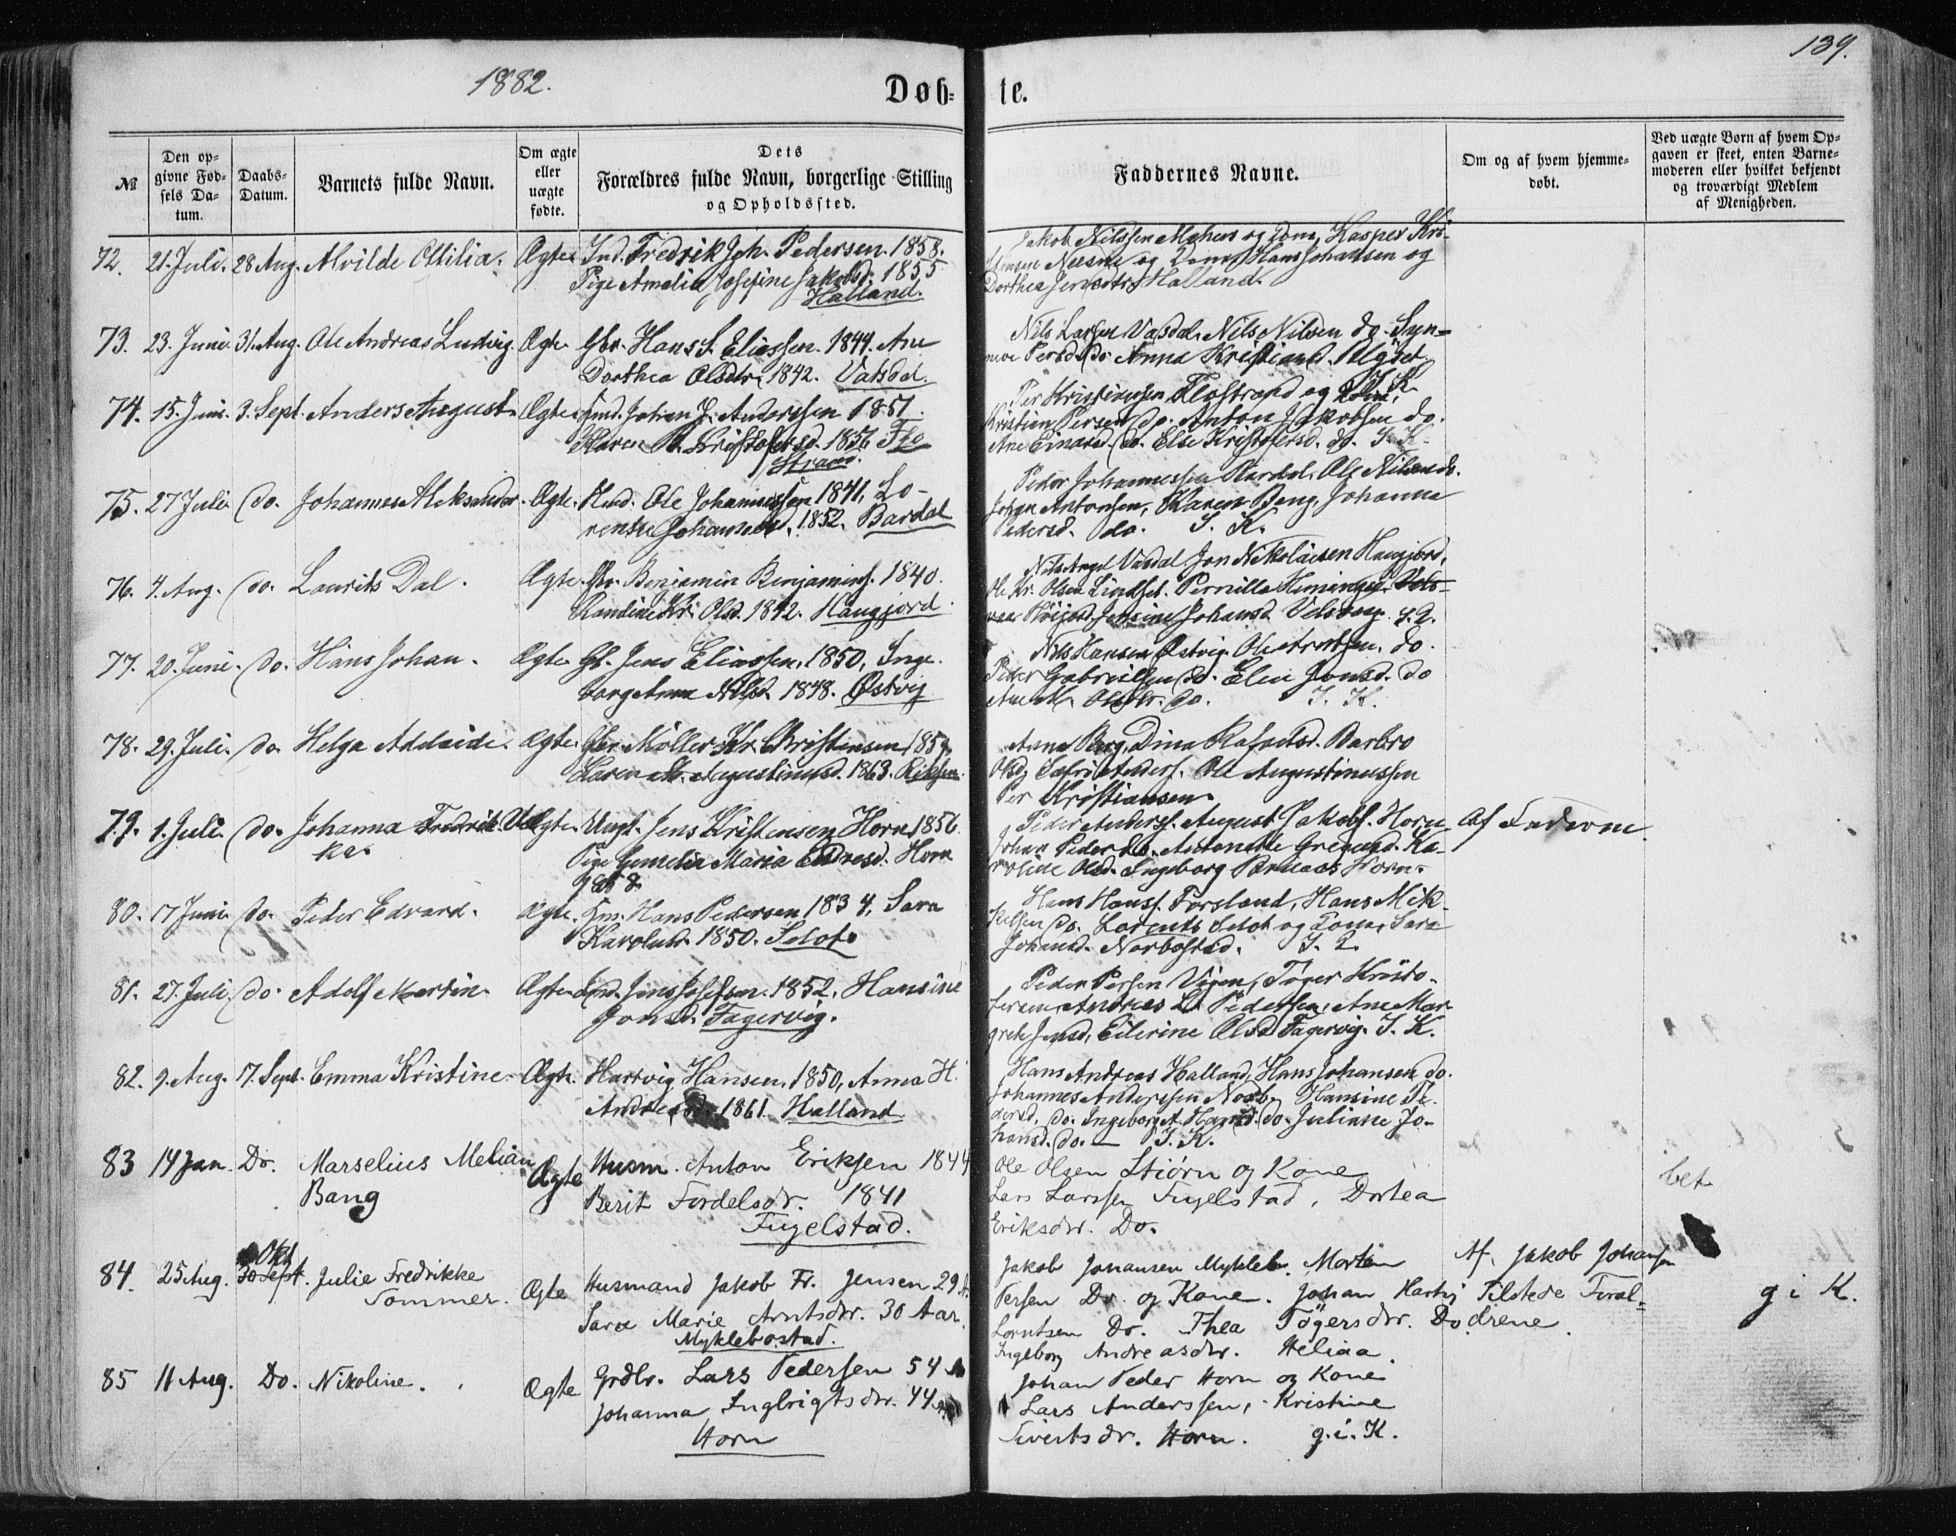 1882.
Døb-
te.
139.
№
Den op-
givne Fød-
sels Da-
tum.
Daabs-
Datum.
Barnets fulde Navn.
Om ægte
eller
uægte
fødte.
Dets
Forældres fulde Navn, borgerlige Stilling
og Opholdssted.
Faddernes Navne.
Om og af hvem hjemme-
døbt.
Ved uægte Børn af hvem Op-
gaven er skeet, enten Barne-
moderen eller hvilket bekjendt
og troværdigt Medlem
af Menigheden.
72. 21. Juli. 28 Aug. Alvilde Ottilia. Ægte Ind. Fredrik Joh. Pedersen. 1858.
Pige Amelia Josefine Jakobsd. 1855
Halland.
Jakob Nilssen og Kone, Kasper Kri-
Nesne og Kone, Hans Johansen og
Dorthea Halland.
73. 23. Juni 31. Aug. Ole Andreas Ludvig. Ægte Gbr. Hans S. Eliassen. 1844. Ane
Dorthea Olsdtr. 1842. Vatsdal.
Nils Larsen Vatsdal. Nils Nilsen do.
Persd. do. Anna Kristiansd.
74. 15. Juni. 3. Sept. Anders August Ægte Ind. Johan P. Anderssen 1851.
Karen B. Kristofersd. 1856 Flo
Strand.
Per Kristianssen Flostrand og Kone, I. K.
Kristian Persen do. Anton Jakobsen do.
Ane Einarsd. do. Else Kristofersd. do. I. K.
75. 27 Juli do. Johannes Aleksander. Ægte. Ind. Ole Johannessen 1841, Lo-
rentse Johannesd. 1852. Bardal
Peder Johannessen Bardal, Ole Nilsen do.
Johan Antonsen, Karen Bang, Johanna
Pedersd. do. I. K.
76. 4. Aug. do. Laurits Dal. Ægte. Gbr. Benjamin Benjamins. 1840.
Randine Kr. Olsd. 1842. Haugjord.
Nils Vatsdal Jon Nikolaisen Haugjord,
Ole Kr. Olsen Pernille
Johansd. Velsvaag. I. K.
77. 20. Juni. do. Hans Johan. Ægte Gb. Jens Eliassen, 1850, Inge-
borg Anna Nilsd. 1848. Østvig
Nils Hansen Østvig. Ole do.
Peder Gabrielsen do. Elen Jonsd. do
Ane M. Olsdtr. do. I. K.
78. 29. Juli. do. Helga Adelaide. Ægte. Gbr Møller Kr. Christensen 1859.
Karen M. Augustinusd. 1863.
Anna Berg, Dina Rafaelsd. Barbro
Olsd. Anders. Ole Augustinussen
Per Kristiansen.
79. 1. Juli do. Johanna Fredrik- Uægte. Ungk. Jens Kristensen Horn 1856
ka.
Pige Maria Endresd. Horn
1858.
Peder Anders. August Jakobs. Horn
Johan Peder do. Antonette Gregusd. Ka-
roline Olsd. Ingeborg Horn.
Af Faderen
80. 17 Juni do. Peder Edvard. Ægte. Hm. Hans Pedersen 1834, Sara
Karolusd. 1850. Selot.
Hans Hans. Forsland, Hans Mik-
kelsen do. Lorents Selot og Kone, Sara
Johansd. Norbostad. I. K.
81. 27. Juli do. Adolf Martin. Ægte Ind. Jens Josefsen. 1852. Hansine
Jonsd. Fagervig.
Peder Persen Vigen, Tøger Kristo-
fersen, Andreas L. Pedersen, Ane Mar-
grete Jensd, Eilerine Olsd. Fagervig. I. K.
82. 9. Aug. 17. Sept. Emma Kristine. Ægte. Hartvig Hansen, 1850, Anna H.
Andreasd. 1861. Halland
Hans Andreas Halland, Hans Johansen do.
Johannes Anderssen Hansine Pe-
dersd. do. Ingeborg A. Hansd. do. Juliane Jo-
hansd. do. — I. K.
83 14 Jan. Do. Marselius Melian
Bang
Ægte
Husm. Anton Eriksen 1844
Berit Fordelsdr. 1841
Fugelstad.
Ole Olsen Stiørn og Kone
Lars Larssen Fugelstad, Dortea
Eriksdr. Do.
bet
84. 25 Aug. 30 Sept. Okt
Julie Fredrikke
Sommer.
Ægte
Husmand Jakob Fr. Jensen 29 A.
Sara Marie Arntsdr. 30 Aar.
Myklebostad.
Jakob Johansen Mykleb. Morten
Persen Do. og Kone. Johan Hartvig
Lorntsen Do. Thea Tøgersdr. Do.
Ingeborg Andreasdr. Heliaa.
Af. Jakob Johansen
Tilstede Foræl-
drene.
g i K.
85 11 Aug. Do. Nikoline. Ægte
Grdbr. Lars Pedersen 54 A
Johanna Ingbrigtsdr. 44 A
Horn
Johan Peder Horn og Kone
Lars Anderssen, Kristine
Sivertsdr. Horn. g. i. K.